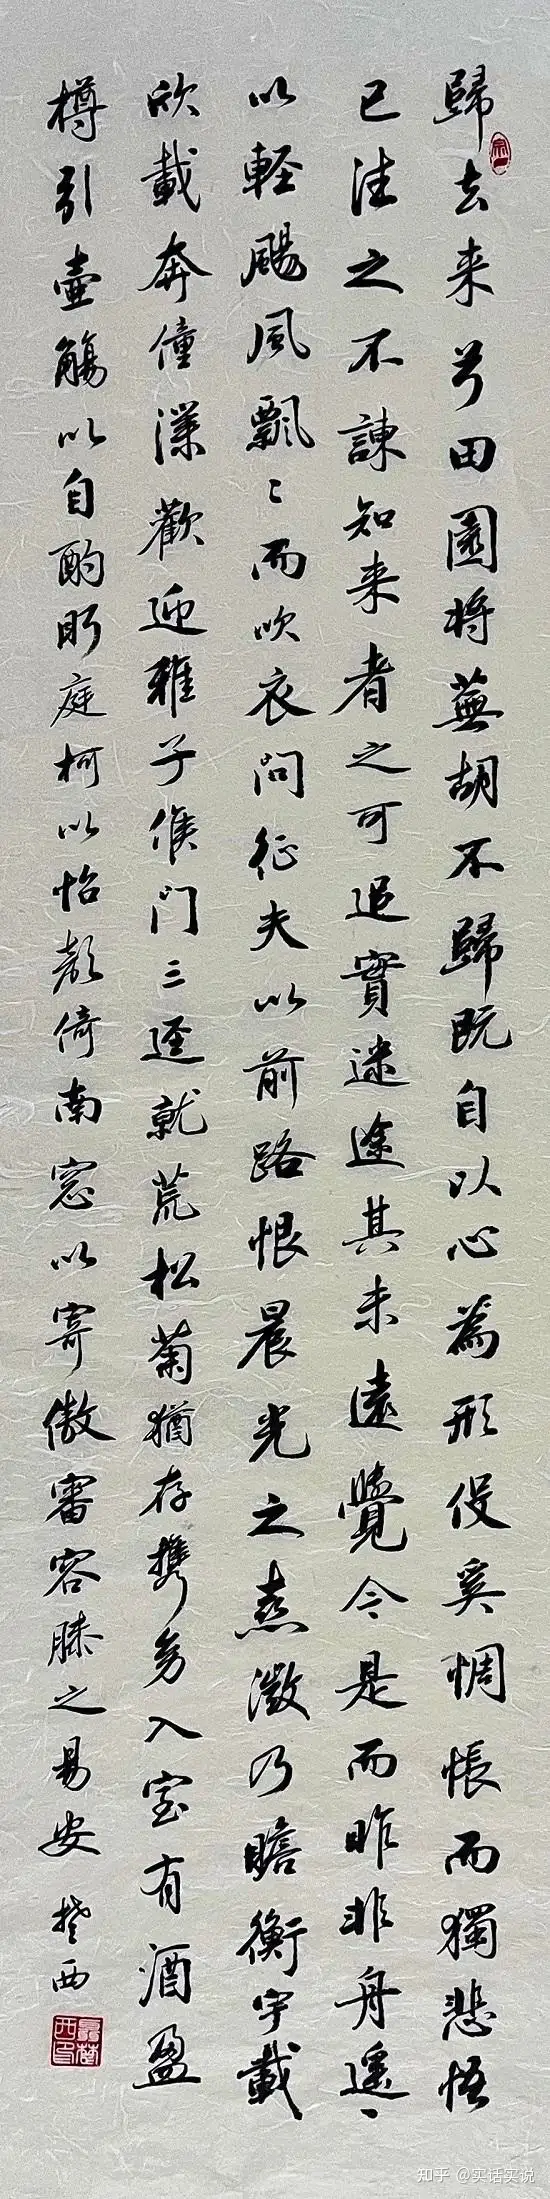 歸去来兮田園将蕪胡不歸既自以心為形役奚惆悵而獨悲悟
已往之不諫知来者之可追實迷途其未遠覺今是而昨非舟遥〻
以軽颺風飄〻而吹衣問征夫以前路恨晨光之熹微乃瞻衡宇載
欣載奔僮僕歡迎稚子候門三逕就荒松菊猶存携幼入室有酒盈
樽引壺觴以自酌眄庭柯以怡顔倚南窓以寄傲審容膝之易安 楚西
知乎 @实话实说